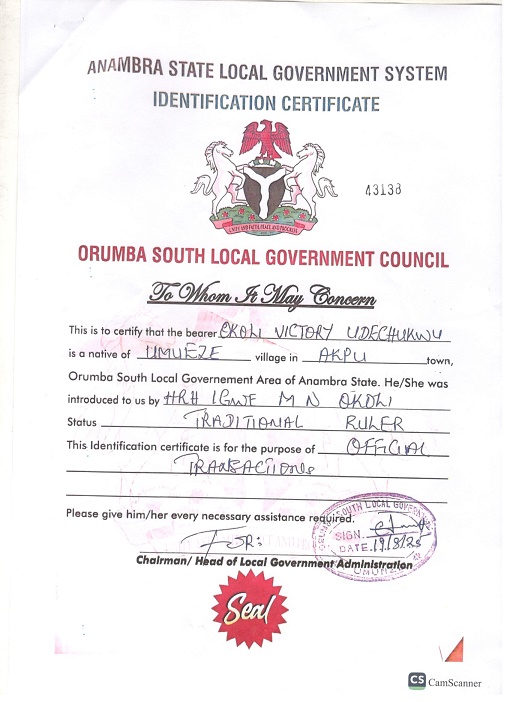 ANAMBRA STATE LOCAL GOVERNMENT SYSTEM
IDENTIFICATION CERTIFICATE
43138
ORUMBA SOUTH LOCAL GOVERNMENT COUNCIL
To Whom It May Concern
This is to certify that the bearer EKOLI VICTORY UDECHUKWU
is a native of UMUEZE village in AKPU town,
Orumba South Local Governement Area of Anambra State. He/She was
introduced to us by HRH IGWE M N OKOLI
Status TRADITIONAL RULER
This Identification certificate is for the purpose of OFFICIAL
TRANSACTIONS
Please give him/her every necessary assistance required.
FOR:
SOUTH LOCAL GOVERN
SIGN.
DATE 19/8/25
Chairman/ Head of Local Government Administration
Seal
CS CamScanner